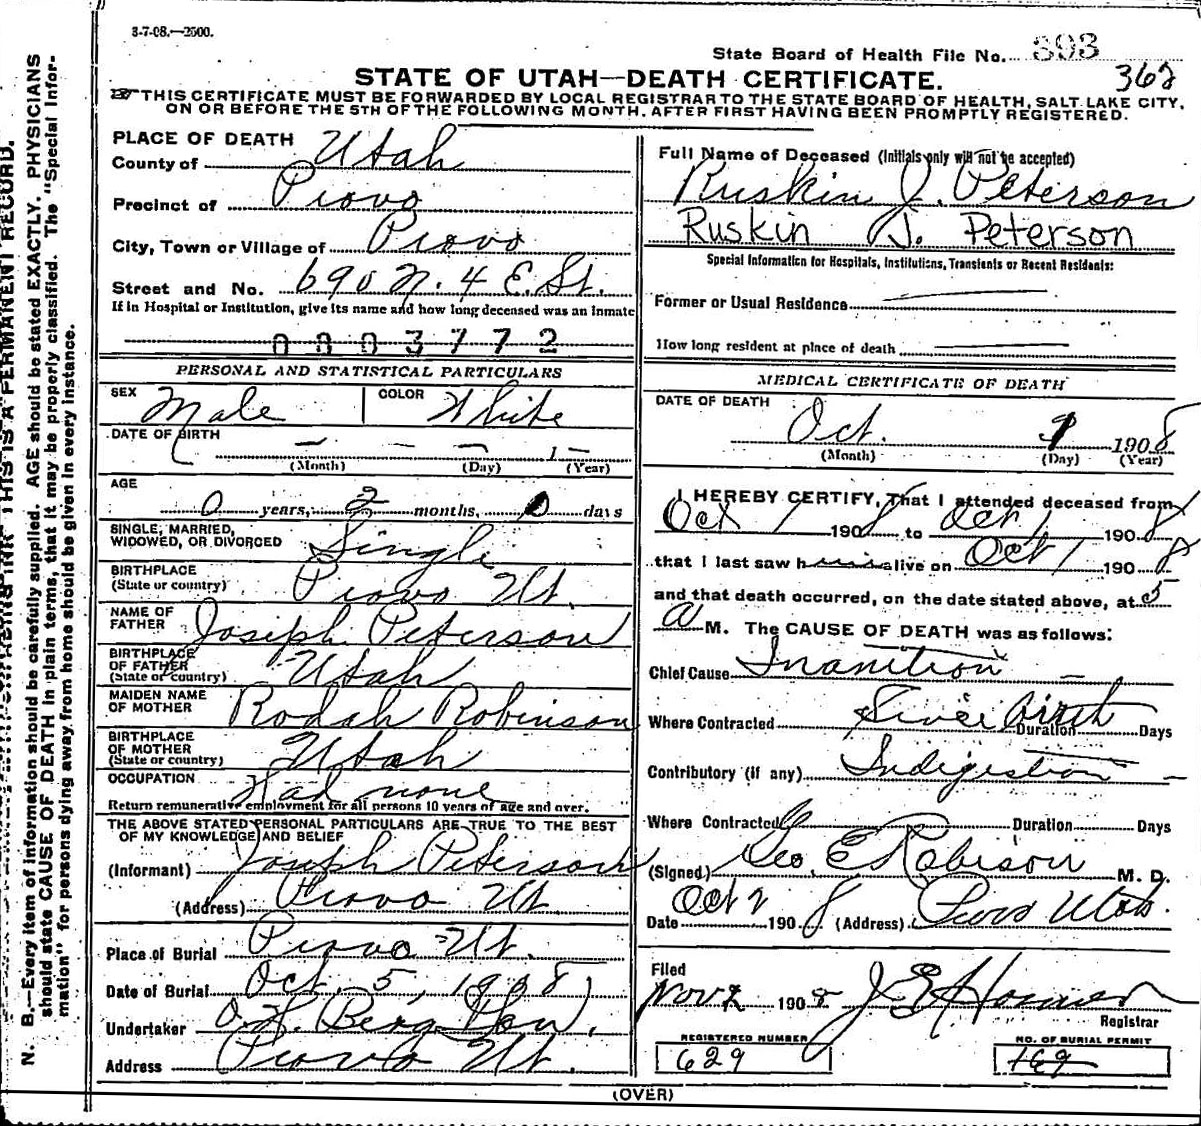 3-7-08.—2500.
State Board of Health File No. 393
362
STATE OF UTAH—DEATH CERTIFICATE.
THIS CERTIFICATE MUST BE FORWARDED BY LOCAL REGISTRAR TO THE STATE BOARD OF HEALTH, SALT LAKE CITY,
ON OR BEFORE THE 5TH OF THE FOLLOWING MONTH, AFTER FIRST HAVING BEEN PROMPTLY REGISTERED.
N. B.—Every item of information should be carefully supplied. AGE should be stated EXACTLY. PHYSICIANS
should state CAUSE OF DEATH in plain terms, that it may be properly classified. The "Special Infor-
mation" for persons dying away from home should be given in every instance.
THIS IS A PERMANENT RECORD.
PLACE OF DEATH
County of Utah
Precinct of Provo
City, Town or Village of Provo
Street and No. 690 N. 4 E. St.
If in Hospital or Institution, give its name and how long deceased was an inmate
0003772
PERSONAL AND STATISTICAL PARTICULARS
SEX Male COLOR White
DATE OF BIRTH
(Month) (Day) 1 (Year)
AGE
0 years, 2 months, 0 days
SINGLE, MARRIED,
WIDOWED, OR DIVORCED Single
BIRTHPLACE
(State or country) Provo Ut.
NAME OF
FATHER Joseph Peterson
BIRTHPLACE
OF FATHER
(State or country) Utah
MAIDEN NAME
OF MOTHER Rodah Robinson
BIRTHPLACE
OF MOTHER
(State or country) Utah
OCCUPATION Had none
Return remunerative employment for all persons 10 years of age and over.
THE ABOVE STATED PERSONAL PARTICULARS ARE TRUE TO THE BEST
OF MY KNOWLEDGE AND BELIEF
(Informant) Joseph Peterson
(Address) Provo Ut.
Place of Burial Provo Ut.
Date of Burial Oct. 5, 1908
Undertaker O. H. Berg & Son
Address Provo Ut.
Full Name of Deceased (Initials only will not be accepted)
Ruskin J. Peterson
Ruskin J. Peterson
Special Information for Hospitals, Institutions, Transients or Recent Residents:
Former or Usual Residence
How long resident at place of death
MEDICAL CERTIFICATE OF DEATH
DATE OF DEATH
Oct. 1908
(Month) (Day) (Year)
I HEREBY CERTIFY, That I attended deceased from
Oct 1 1908 to Oct 1 1908
that I last saw him alive on Oct 1 1908
and that death occurred, on the date stated above, at 5
A M. The CAUSE OF DEATH was as follows:
Chief Cause Inanition
Where Contracted Since birth Duration Days
Contributory (if any) Indigestion
Where Contracted Duration Days
(Signed) Geo. E. Robison M. D.
Oct 2
Date 1908 (Address) Provo Utah.
Filed
Nov 2 1908 J E Homer
Registrar
REGISTERED NUMBER
629
NO. OF BURIAL PERMIT
(OVER)